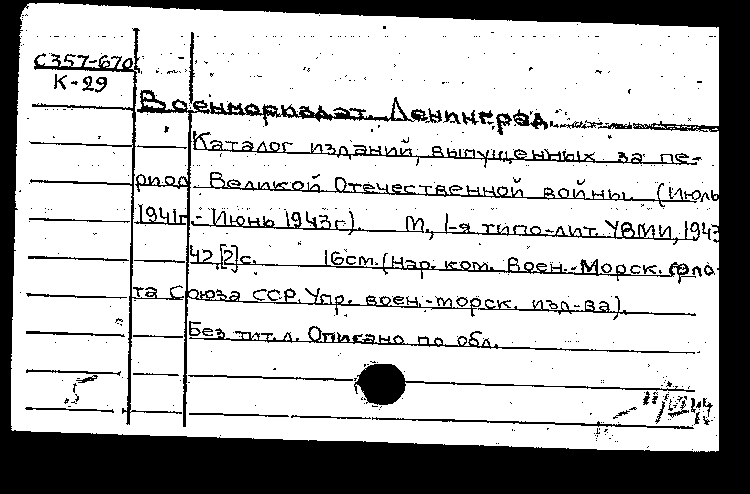 С357-670
К-29
Воениориздат. Ленинград.
Каталог изданий, выпущенных за пе-
риод Великой Отечественной войны. (Июль
1941г.- Июнь 1943г). М., 1-я типо-лит. УВМИ, 1943
42,[2]с. 16см.(Нар. ком. Воен.-Морск. фло-
та Союза ССР. Упр. воен.-морск. изд-ва).
Без тит.л. Описано по обл.
5